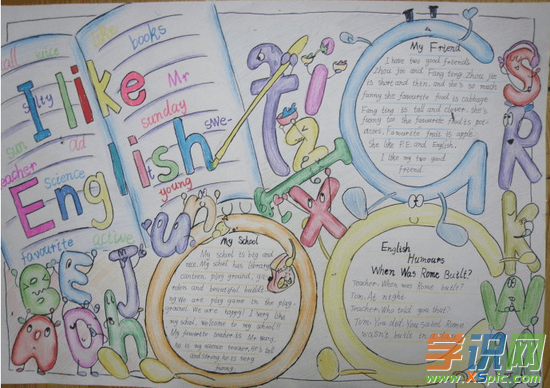 all
voice
like
books
I like
English
salty
Mr
sunday
sun
ad
swe-
teacher
science
young
favourite
active
My Friend
I have two good friends
Zhou Jin and Fang ting. Zhou Jin
is short and thin. and she's so much
funny. she favourite food is cabbage
Fang ting is tall and clever. She's
funny too. She favourite food is pot-
atoes. Favourite fruit is apple.
She like P.E. and English.
I like my two good
friend.
My School
My school is big and
nice. My school has library
canteen, play ground, ga-
rden and beautiful buildi-
ng. We are play game in the play-
ground. We are happy! I very like
my school. welcome to my school!!
My favourite teacher is
he is my science teacher, He's tall
and strong. he is very
funny.
English
Humours
When Was Rome Built?
Teacher: When was Rome built?
Tom: At night.
Teacher: Who told you that?
Tom: You did. You said Rome
wasn't built in
学识网
www.XSpic.com